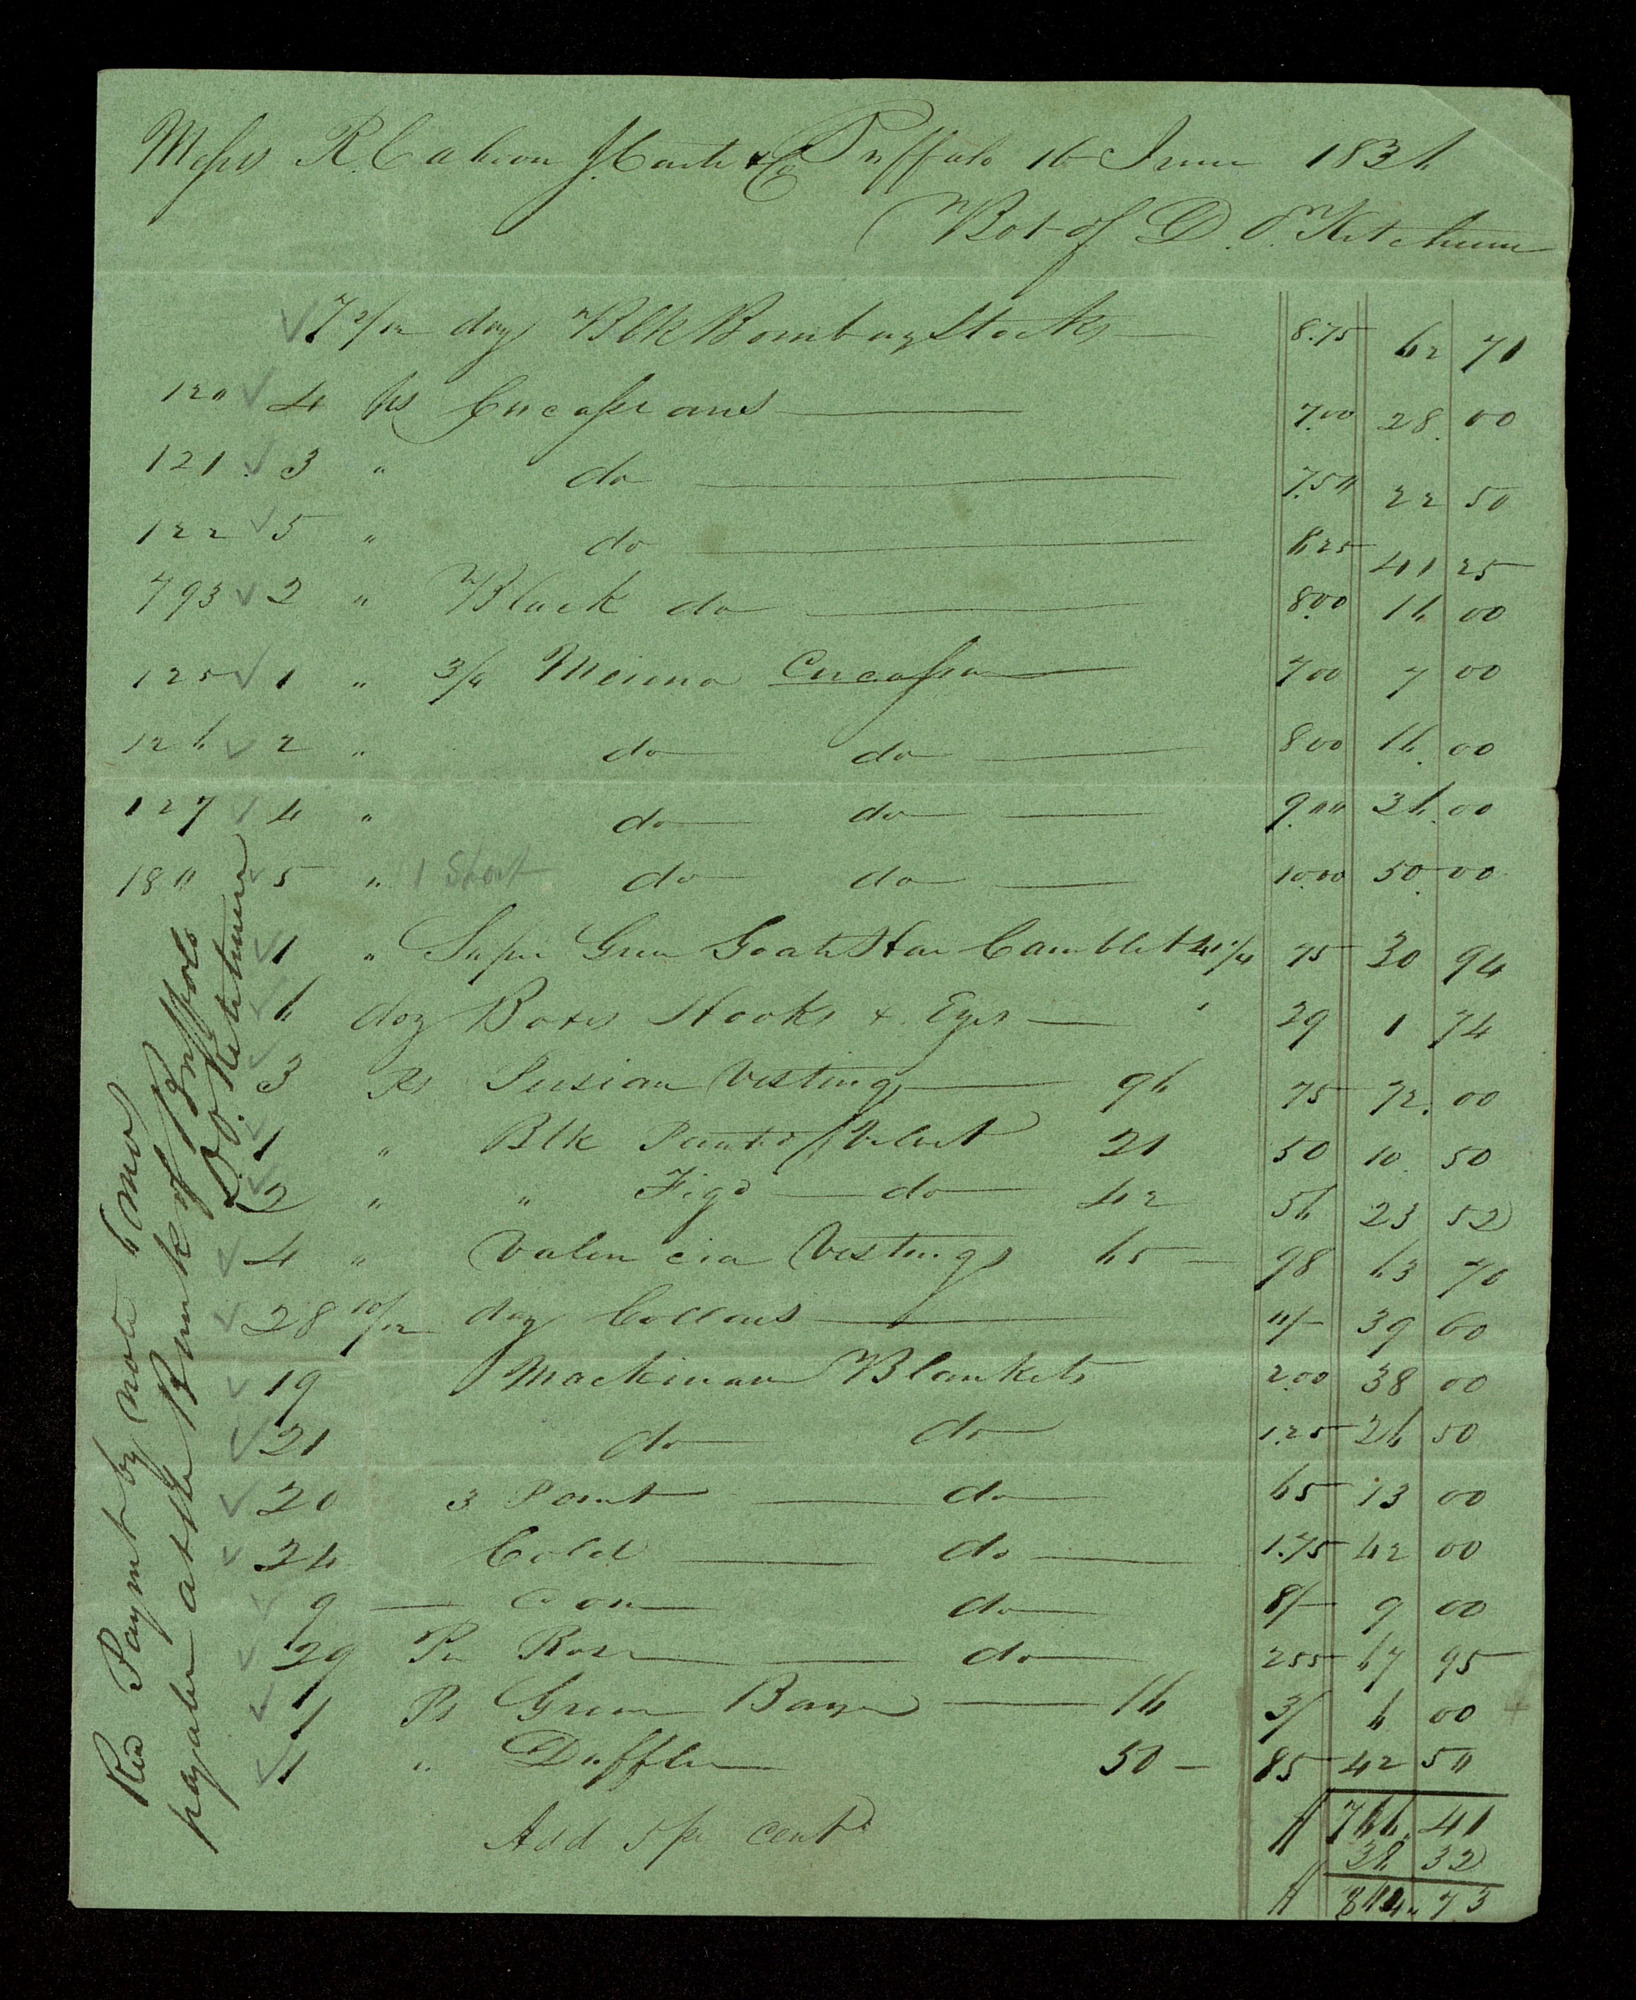 Messrs R. Calvon J. Carts & Co Buffalo 16 June 1836
Bot of D. O. Ketchum
7 2/12 doz Blk Bombay Stocks 8.75 62 71
120 4 ps Circassians 7.00 28.00
121. 3 " do 7.50 22 50
122 5 " do 8.25 41 25
793 2 " Black do 8.00 16 00
125 1 " 3/4 Merino Circassn 7 00 7 00
126 2 " do do 8 00 16.00
127 4 " do do 9.00 36.00
180 5 " 1 Short do do 10.00 50.00
1 " Super Green Goats Hair Camblet 41 1/4 75 30 94
6 doz Boxes Hooks & Eyes 29 1 74
3 Ps Persian Vesting 96 75 72.00
1 " Blk Painted Velvet 21 50 10.50
2 " " Figd do 42 56 23 52
4 " Valencia Vestings 65 98 63 70
28 10/12 doz Collars 11/- 39 60
19 Mackinaw Blankets 2.00 38 00
21 do do 1.25 26 50
20 3 Point do 65 13 00
24 Cold do 1.75 42 00
9 do 8/- 9 00
29 Pr Rose do 255 67 95
1 Ps Green Baze 16 3/ 6 00
1 " Duffle 50 85 42 50
$ 766.41
Add 5 pr cent 38 32
$ 804.73
Recd Paymt by note 6 mo
payable at the Bank of Buffalo
D. O. Ketchum